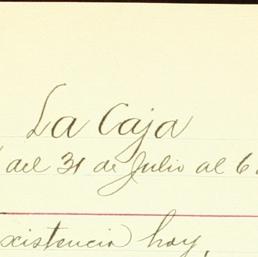 La Caja
del 31 de Julio al 6
xistencia hoy,